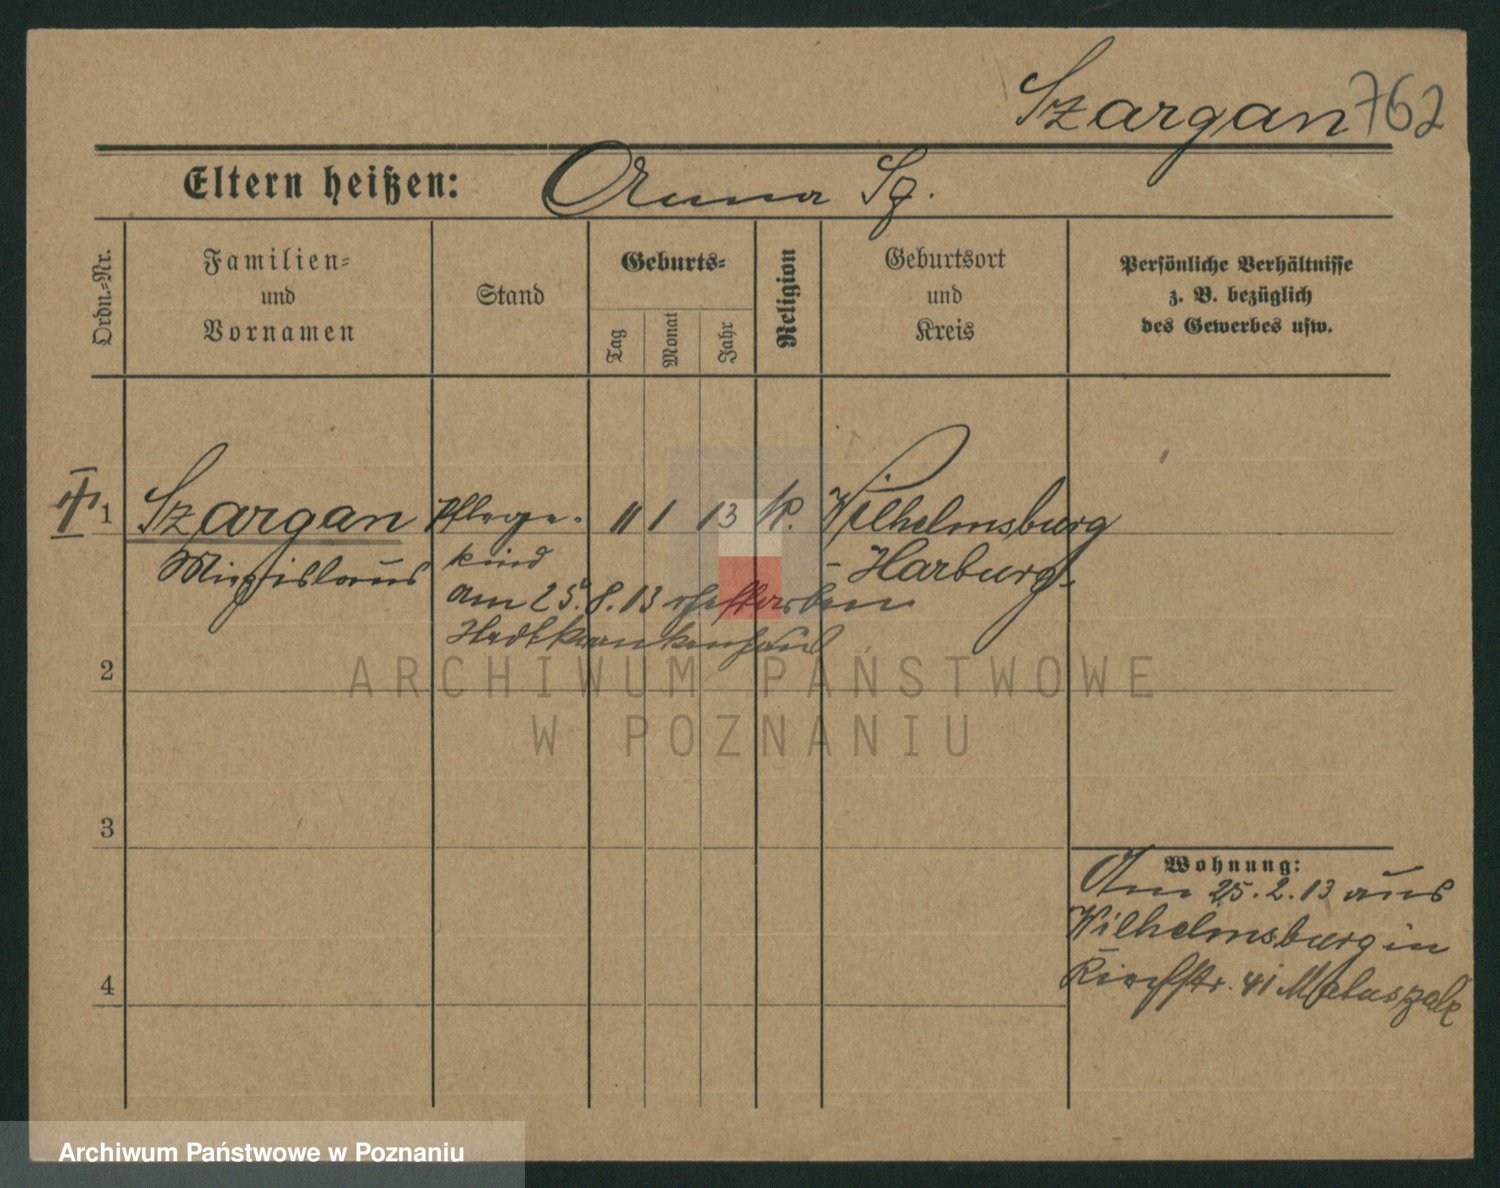 Szargan 762
Eltern heißen: Anna Sz.
Ordn.-Nr.
Familien-
und
Vornamen
Stand
Geburts-
Tag
Monat
Jahr
Religion
Geburtsort
und
Kreis
Persönliche Verhältnisse
z. B. bezüglich
des Gewerbes usw.
1 Szargan Pflege- 11 1 13 K. Wilhelmsburg
Miezislaus kind - Harburg.
am 25.8.13 gestorben
Stadtkrankenhaus
2
ARCHIWUM PAŃSTWOWE
W POZNANIU
3
Wohnung:
Am 25.2.13 aus
Wilhelmsburg in
Kirchstr. 41
4
Archiwum Państwowe w Poznaniu